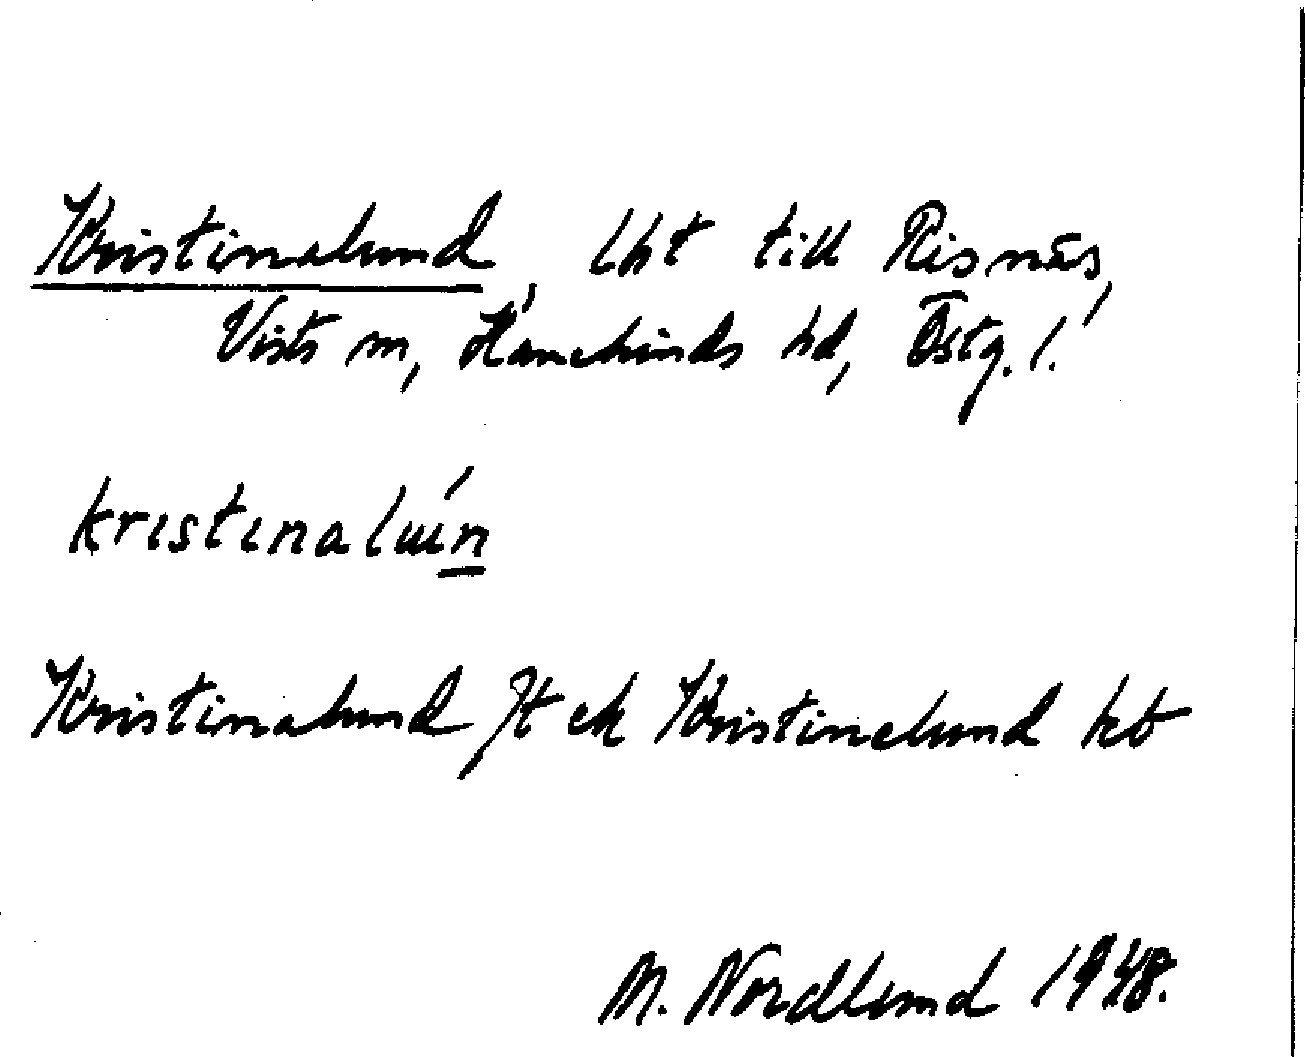 Kristinalund, lht till Risnäs,
Vists sn, Hanekinds hd, Östg. l.
kristinaluin
Kristinalund Jt ek Kristinelund kb
M. Nordlund 1948.